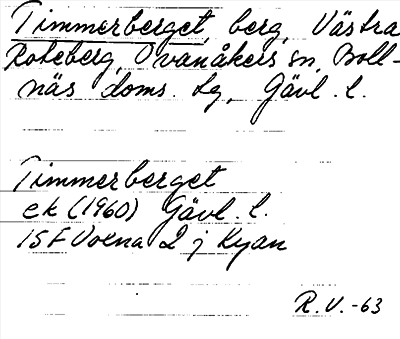 Timmerberget, berg, Västra
Roteberg, Ovanåkers sn, Boll-
näs doms. lg, Gävl. l.
Timmerberget
ek (1960) Gävl. l.
15F Voxna 2 j Kyan
R.V.-63